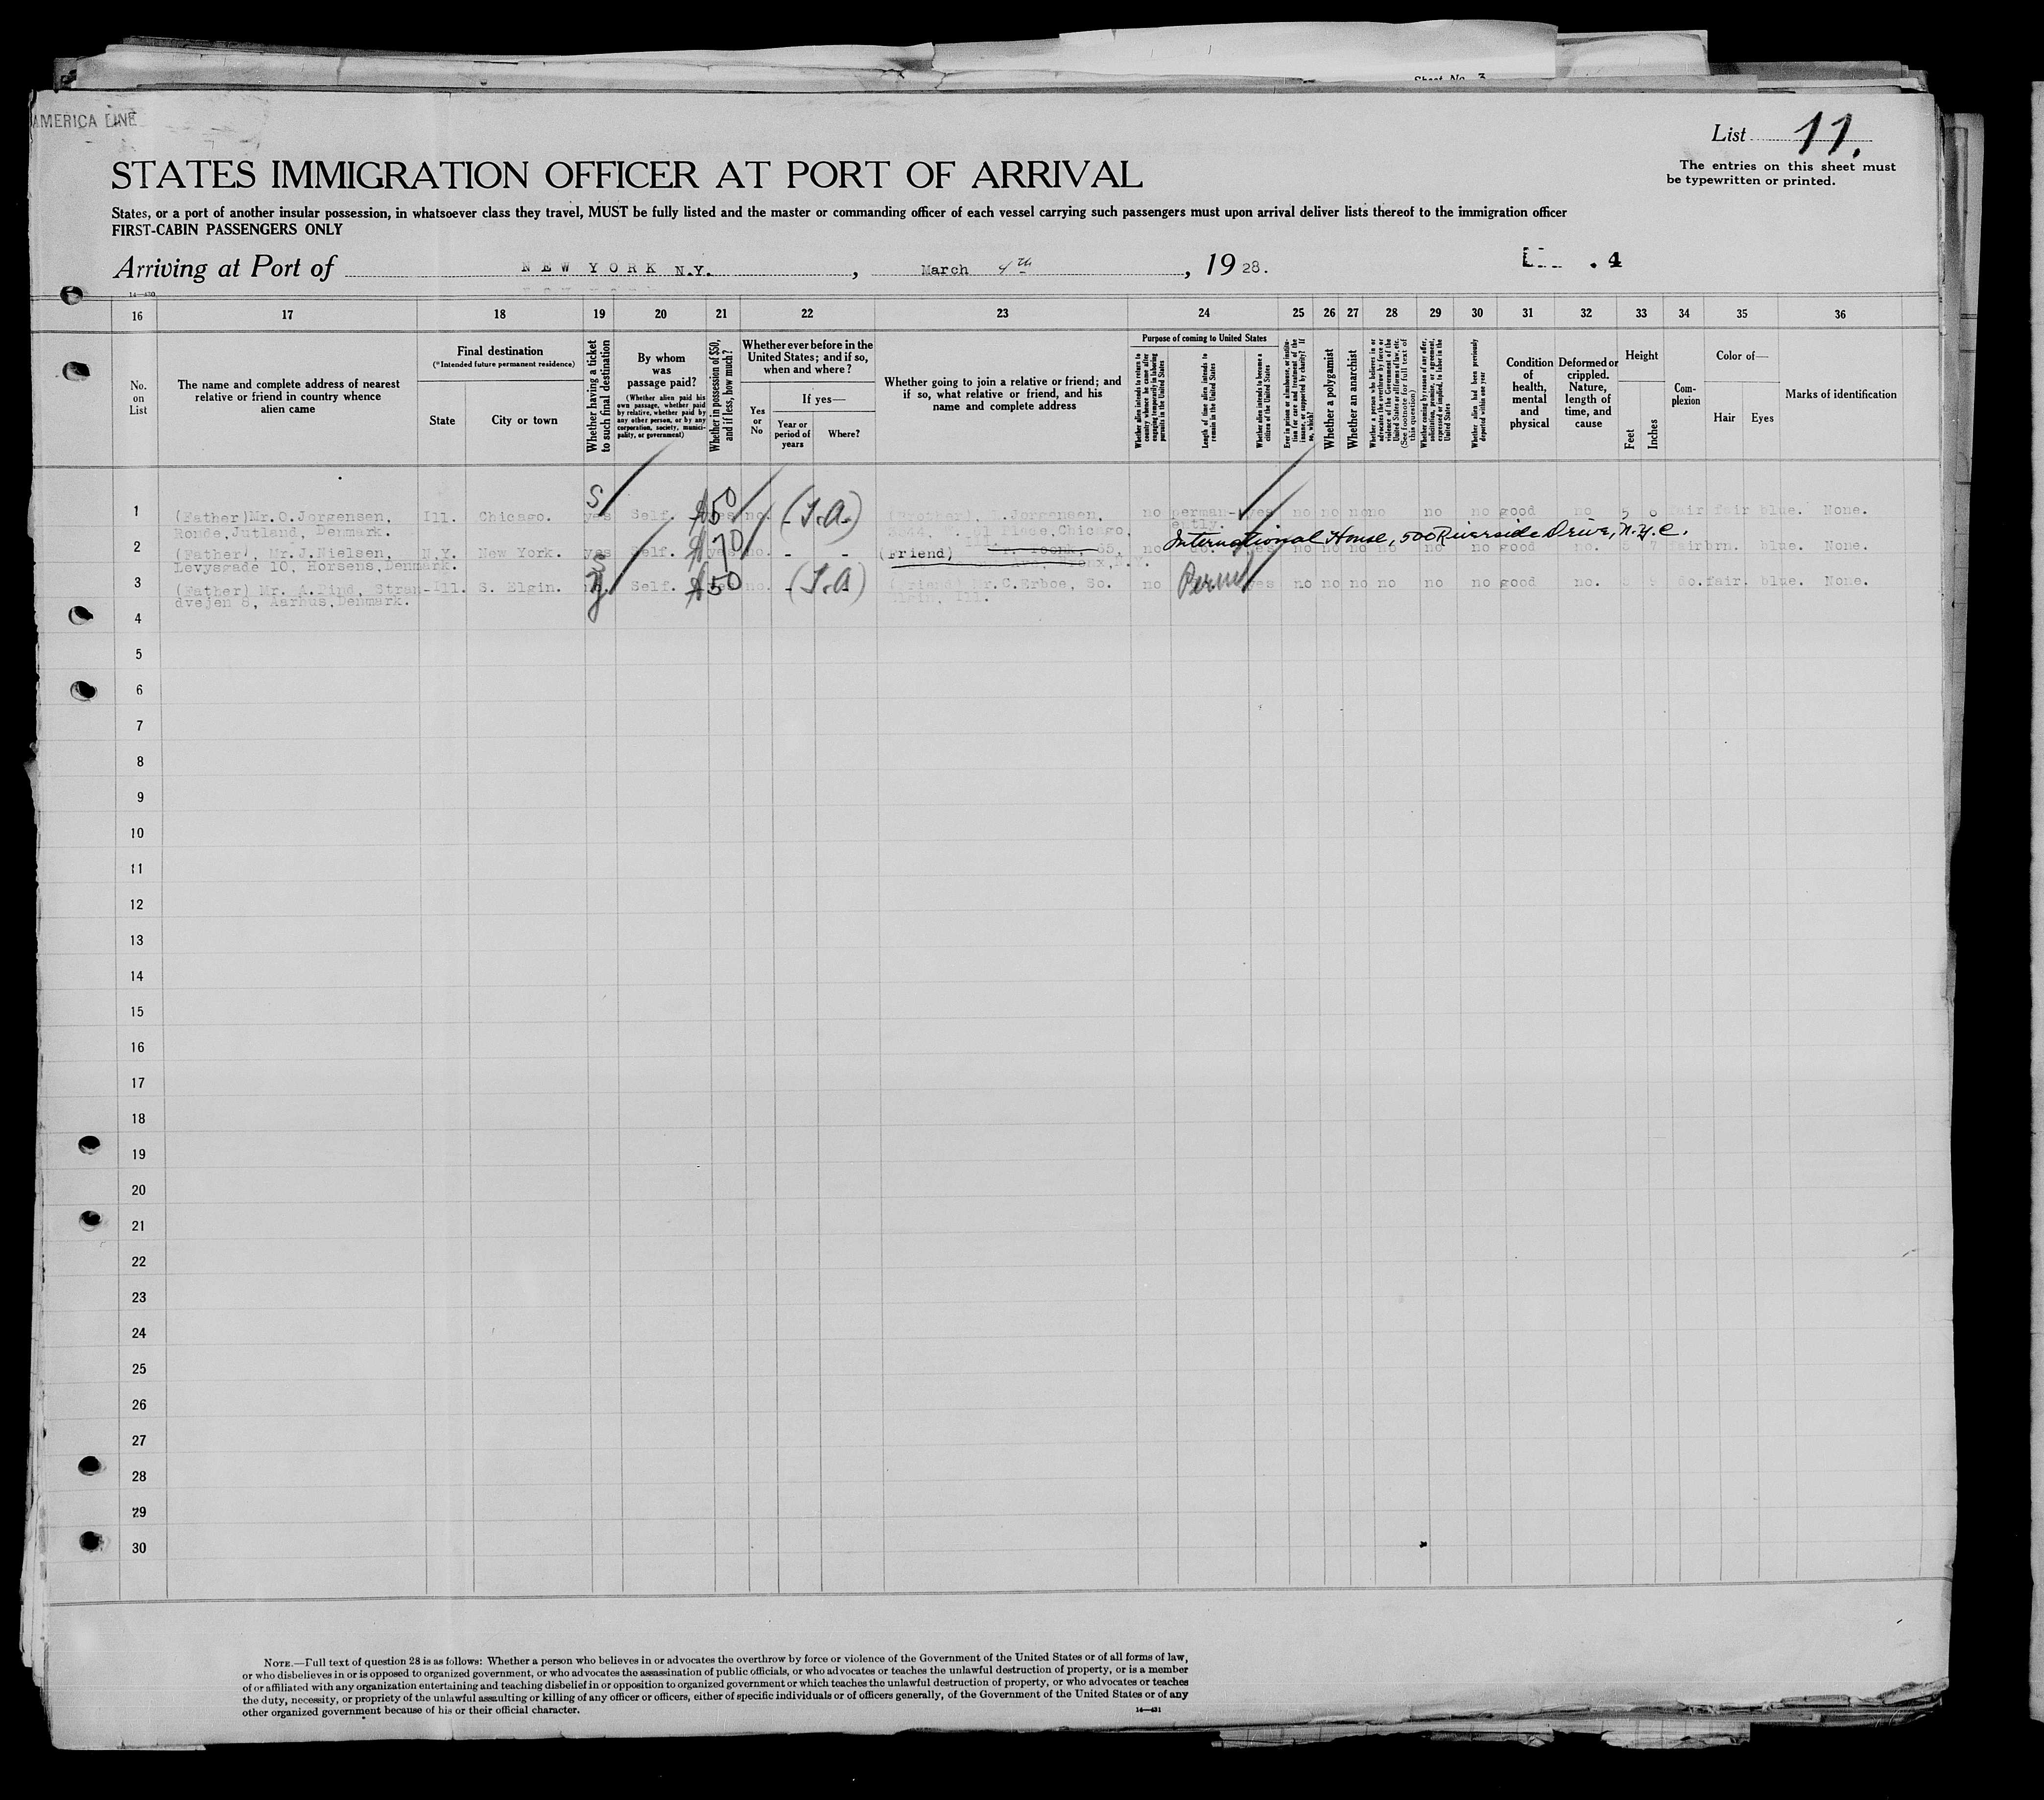 Sheet No. 3
AMERICA LINE
List 11.
STATES IMMIGRATION OFFICER AT PORT OF ARRIVAL
The entries on this sheet must
be typewritten or printed.
States, or a port of another insular possession, in whatsoever class they travel, MUST be fully listed and the master or commanding officer of each vessel carrying such passengers must upon arrival deliver lists thereof to the immigration officer
FIRST-CABIN PASSENGERS ONLY
Arriving at Port of NEW YORK N.Y. , March 4th , 19 28. . 4
14—430
16 17 18 19 20 21 22 23 24 25 26 27 28 29 30 31 32 33 34 35 36
No.
on
List
The name and complete address of nearest
relative or friend in country whence
alien came
Final destination
(*Intended future permanent residence)
State
City or town
Whether having a ticket
to such final destination
By whom
was
passage paid?
(Whether alien paid his
own passage, whether paid
by relative, whether paid by
any other person, or by any
corporation, society, munici-
pality, or government)
Whether in possession of $50,
and if less, how much?
Whether ever before in the
United States; and if so,
when and where?
Yes
or
No
If yes—
Year or
period of
years
Where?
Whether going to join a relative or friend; and
if so, what relative or friend, and his
name and complete address
Purpose of coming to United States
Whether alien intends to return to
country whence he came after
engaging temporarily in laboring
pursuits in the United States
Length of time alien intends to
remain in the United States
Whether alien intends to become a
citizen of the United States
Ever in prison or almshouse, or institu-
tion for care and treatment of the
insane, or supported by charity? If
so, which?
Whether a polygamist
Whether an anarchist
Whether a person who believes in or
advocates the overthrow by force or
violence of the Government of the
United States or all forms of law, etc.
(See footnote for full text of
this question)
Whether coming by reason of any offer,
solicitation, promise, or agreement,
expressed or implied, to labor in the
United States
Whether alien had been previously
deported within one year
Condition
of
health,
mental
and
physical
Deformed or
crippled.
Nature,
length of
time, and
cause
Height
Feet
Inches
Com-
plexion
Color of—
Hair Eyes
Marks of identification
1 (Father)Mr.O.Jorgensen, Ill. Chicago. S yes Self. $50 yes no. - (T.A.) Jorgensen, no perman- yes no no no no no no good no 5 fair fair blue. None.
Ronde,Jutland, Denmark. Place,Chicago, ently.
2 (Father), Mr.J.Nielsen, N.Y. New York. yes Self. $70 yes no. - - (Friend) 65, no International House, 500 Riverside Drive, N.Y.C. yes no no no no no no good no. fair brn. blue. None.
Levysgade 10, Horsens,Denmark.
3 (Father) Mr. A.Pind, Stran-Ill. S. Elgin. Self. $50 no. - (T.A) (Friend) Mr.C.Erboe, So. no Perm yes no no no no no no good no. 5 do. fair. blue. None.
dvejen 8, Aarhus,Denmark. Ill.
4
5
6
7
8
9
10
11
12
13
14
15
16
17
18
19
20
21
22
23
24
25
26
27
28
29
30
NOTE.—Full text of question 28 is as follows: Whether a person who believes in or advocates the overthrow by force or violence of the Government of the United States or of all forms of law,
or who disbelieves in or is opposed to organized government, or who advocates the assassination of public officials, or who advocates or teaches the unlawful destruction of property, or is a member
of or affiliated with any organization entertaining and teaching disbelief in or opposition to organized government or which teaches the unlawful destruction of property, or who advocates or teaches
the duty, necessity, or propriety of the unlawful assaulting or killing of any officer or officers, either of specific individuals or of officers generally, of the Government of the United States or of any
other organized government because of his or their official character.
14—431